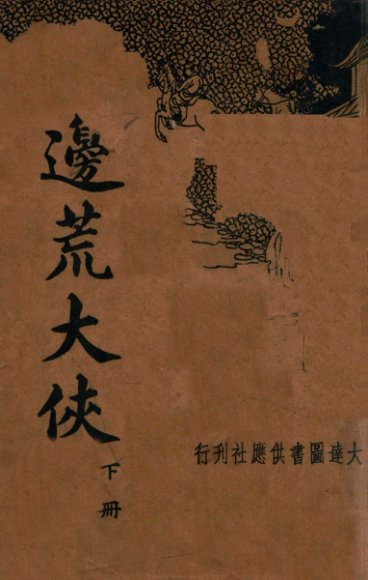 邊荒大俠
下冊
大達圖書供應社刊行